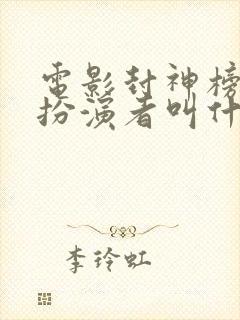 電影封神榜
扮演者叫什
李玲虹